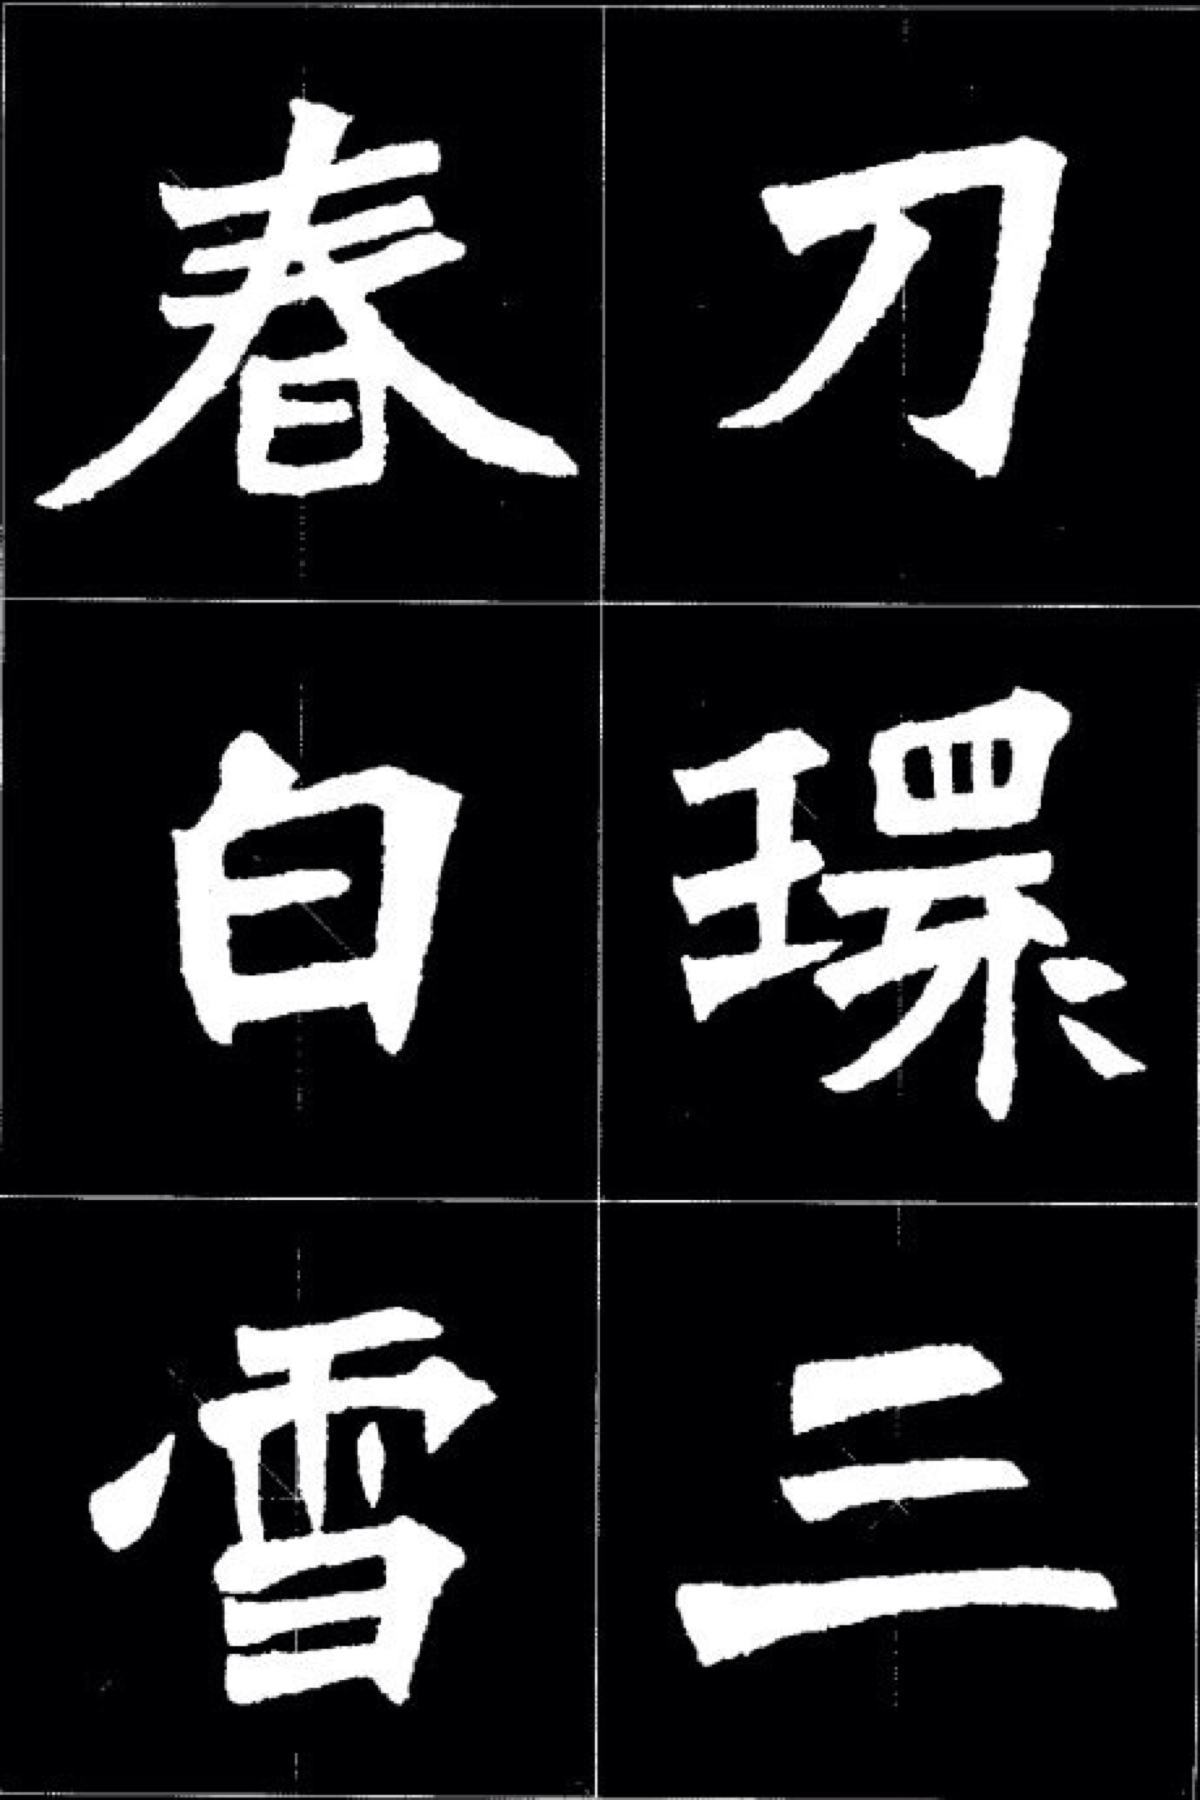 刀環三
春白雪